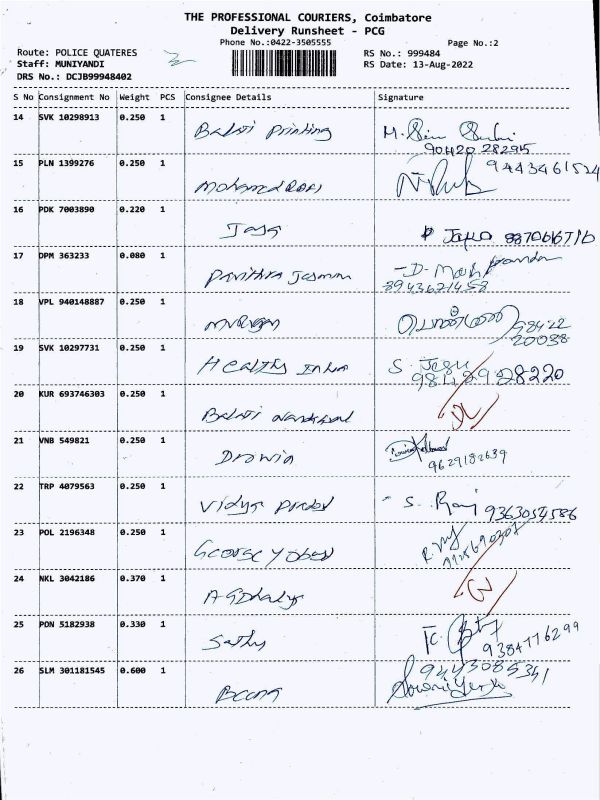 THE PROFESSIONAL COURIERS, Coimbatore
Delivery Runsheet - PCG
Phone No.:0422-3505555
Page No.:2
Route: POLICE QUATERES
RS No.: 999484
Staff: MUNIYANDI
RS Date: 13-Aug-2022
DRS No.: DCJB99948402
S No Consignment No Weight PCS Consignee Details Signature
14 SVK 10298913 0.250 1 Balaji Printing
90420 282915
15 PLN 1399276 0.250 1 9443461524
16 PDK 7003890 0.220 1 Jaya
17 DPM 363233 0.080 1 Pavithra Jasmin
8943621458
18 VPL 940148887 0.250 1 Murugan
98422
20038
19 SVK 10297731 0.250 1 Healthy India S. Jegu
98429 28220
20 KUR 693746303 0.250 1 Balaji
21 VNB 549821 0.250 1
9629182639
22 TRP 4079563 0.250 1 Vidya S. Raj 9363054586
23 POL 2196348 0.250 1 George
24 NKL 3042186 0.370 1
25 PON 5182938 0.330 1 Sathy
9384776299
26 SLM 301181545 0.600 1 9443085341